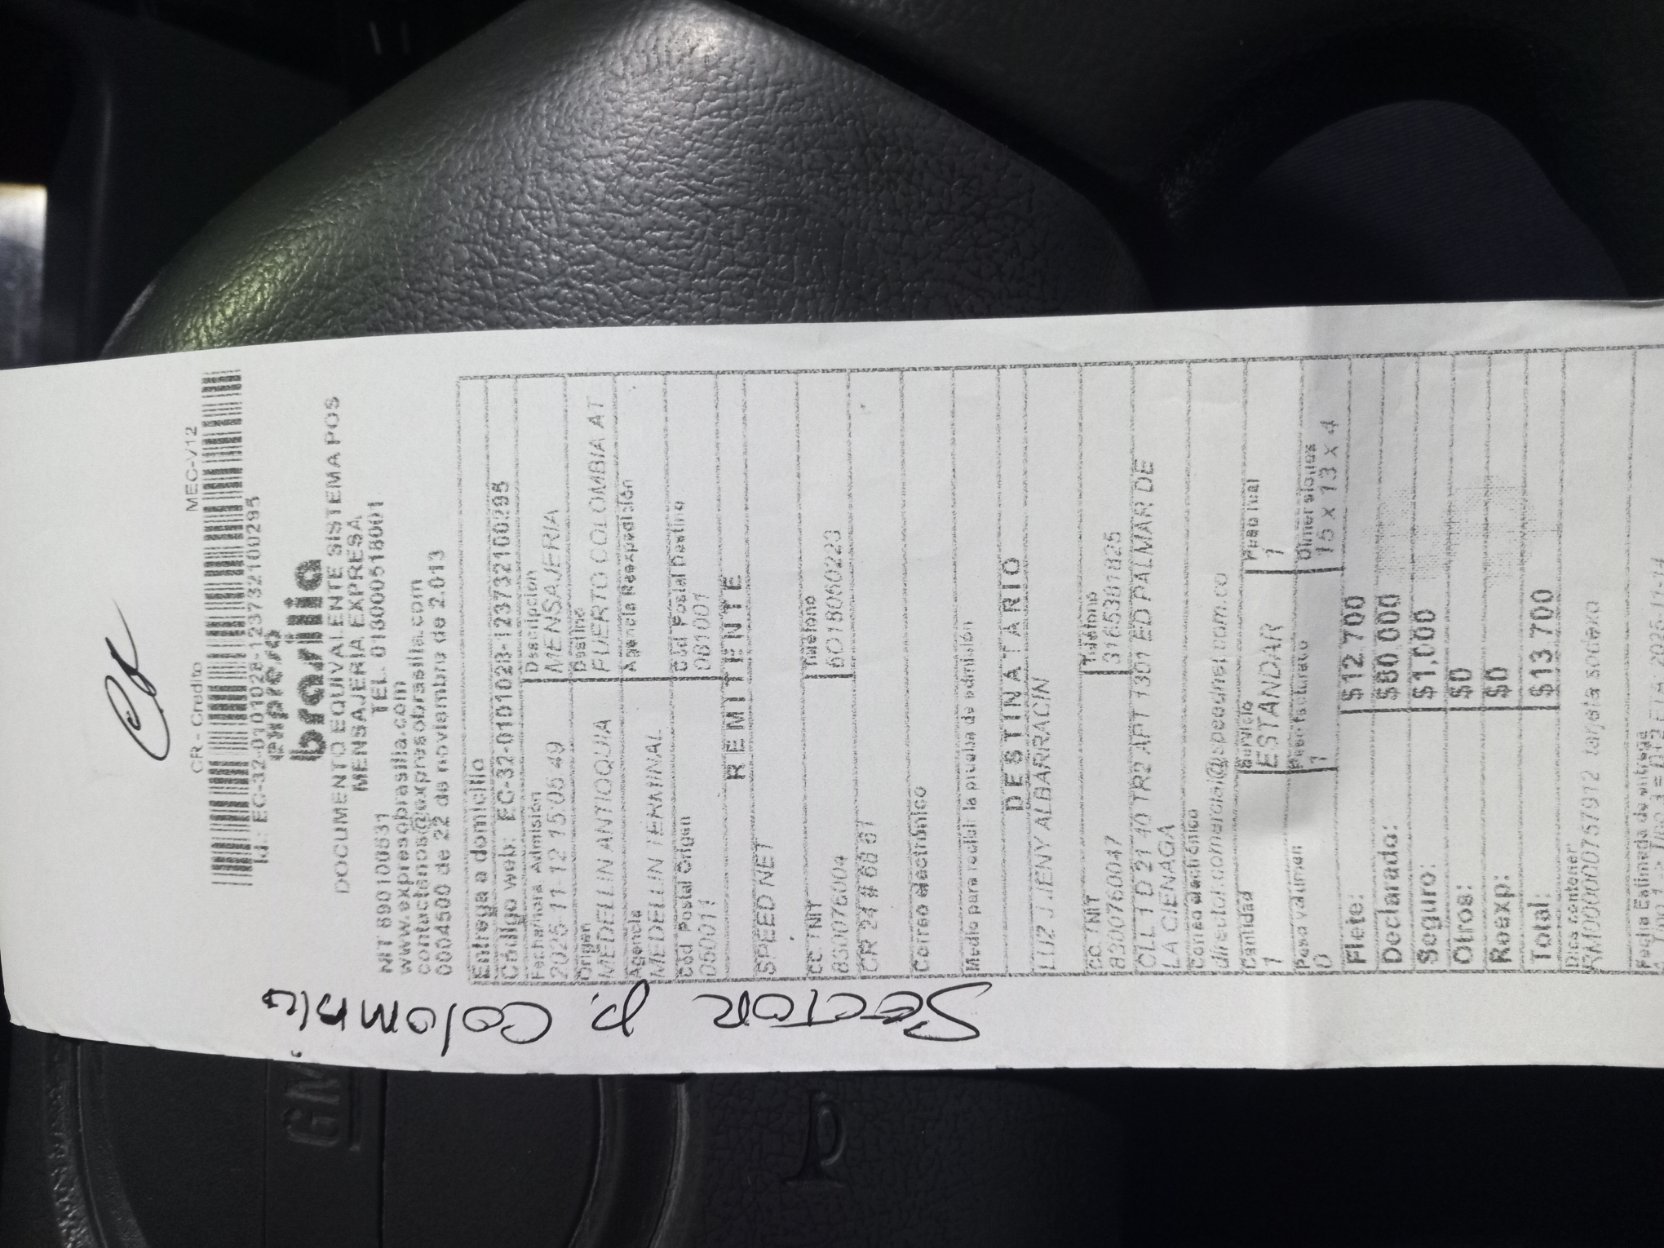 CR - Credito MEC-V12
Id.: EC-32-0101028-1237321100295
expreso
brasilia
DOCUMENTO EQUIVALENTE SISTEMA POS
MENSAJERIA EXPRESA
NIT 890100531 TEL. 018000518001
www.expresobrasilia.com
contactenos@expresobrasilia.com
004500 de 22 de noviembre de 2.013
Entrega a domicilio
Código web: EC-32-0101028-1237321100295
Fecha/hora Admisión Descripción
2025-11-12 15:05:49 MENSAJERIA
Origen Destino
MEDELLIN ANTIOQUIA PUERTO COLOMBIA AT
Agencia Agencia Reexpedición
MEDELLIN TERMINAL
Cód Postal Origen Cód Postal Destino
050011 081001
REMITENTE
SPEED NET
CC / NIT Teléfono
8300760004 6018060223
CR 24 # 66 61
Correo electrónico
Medio para recibir la prueba de admisión
DESTINATARIO
LUZ JJENY ALBARRACIN
CC / NIT Teléfono
8300760047 3165301825
CLL 1 D 21 10 TR2 APT 1301 ED PALMAR DE
LA CIENAGA
Correo electrónico
Cantidad Servicio Peso real
1 ESTANDAR 1
Peso volumen Peso facturado Dimensiones
0 1 15 x 13 x 4
Flete: $12.700
Declarado: $80.000
Seguro: $1.000
Otros: $0
Reexp: $0
Total: $13.700
Dice contener
RM00000757912 tarjeta sodexo
Fecha Estimada de entrega
SECTOR p. Colombia